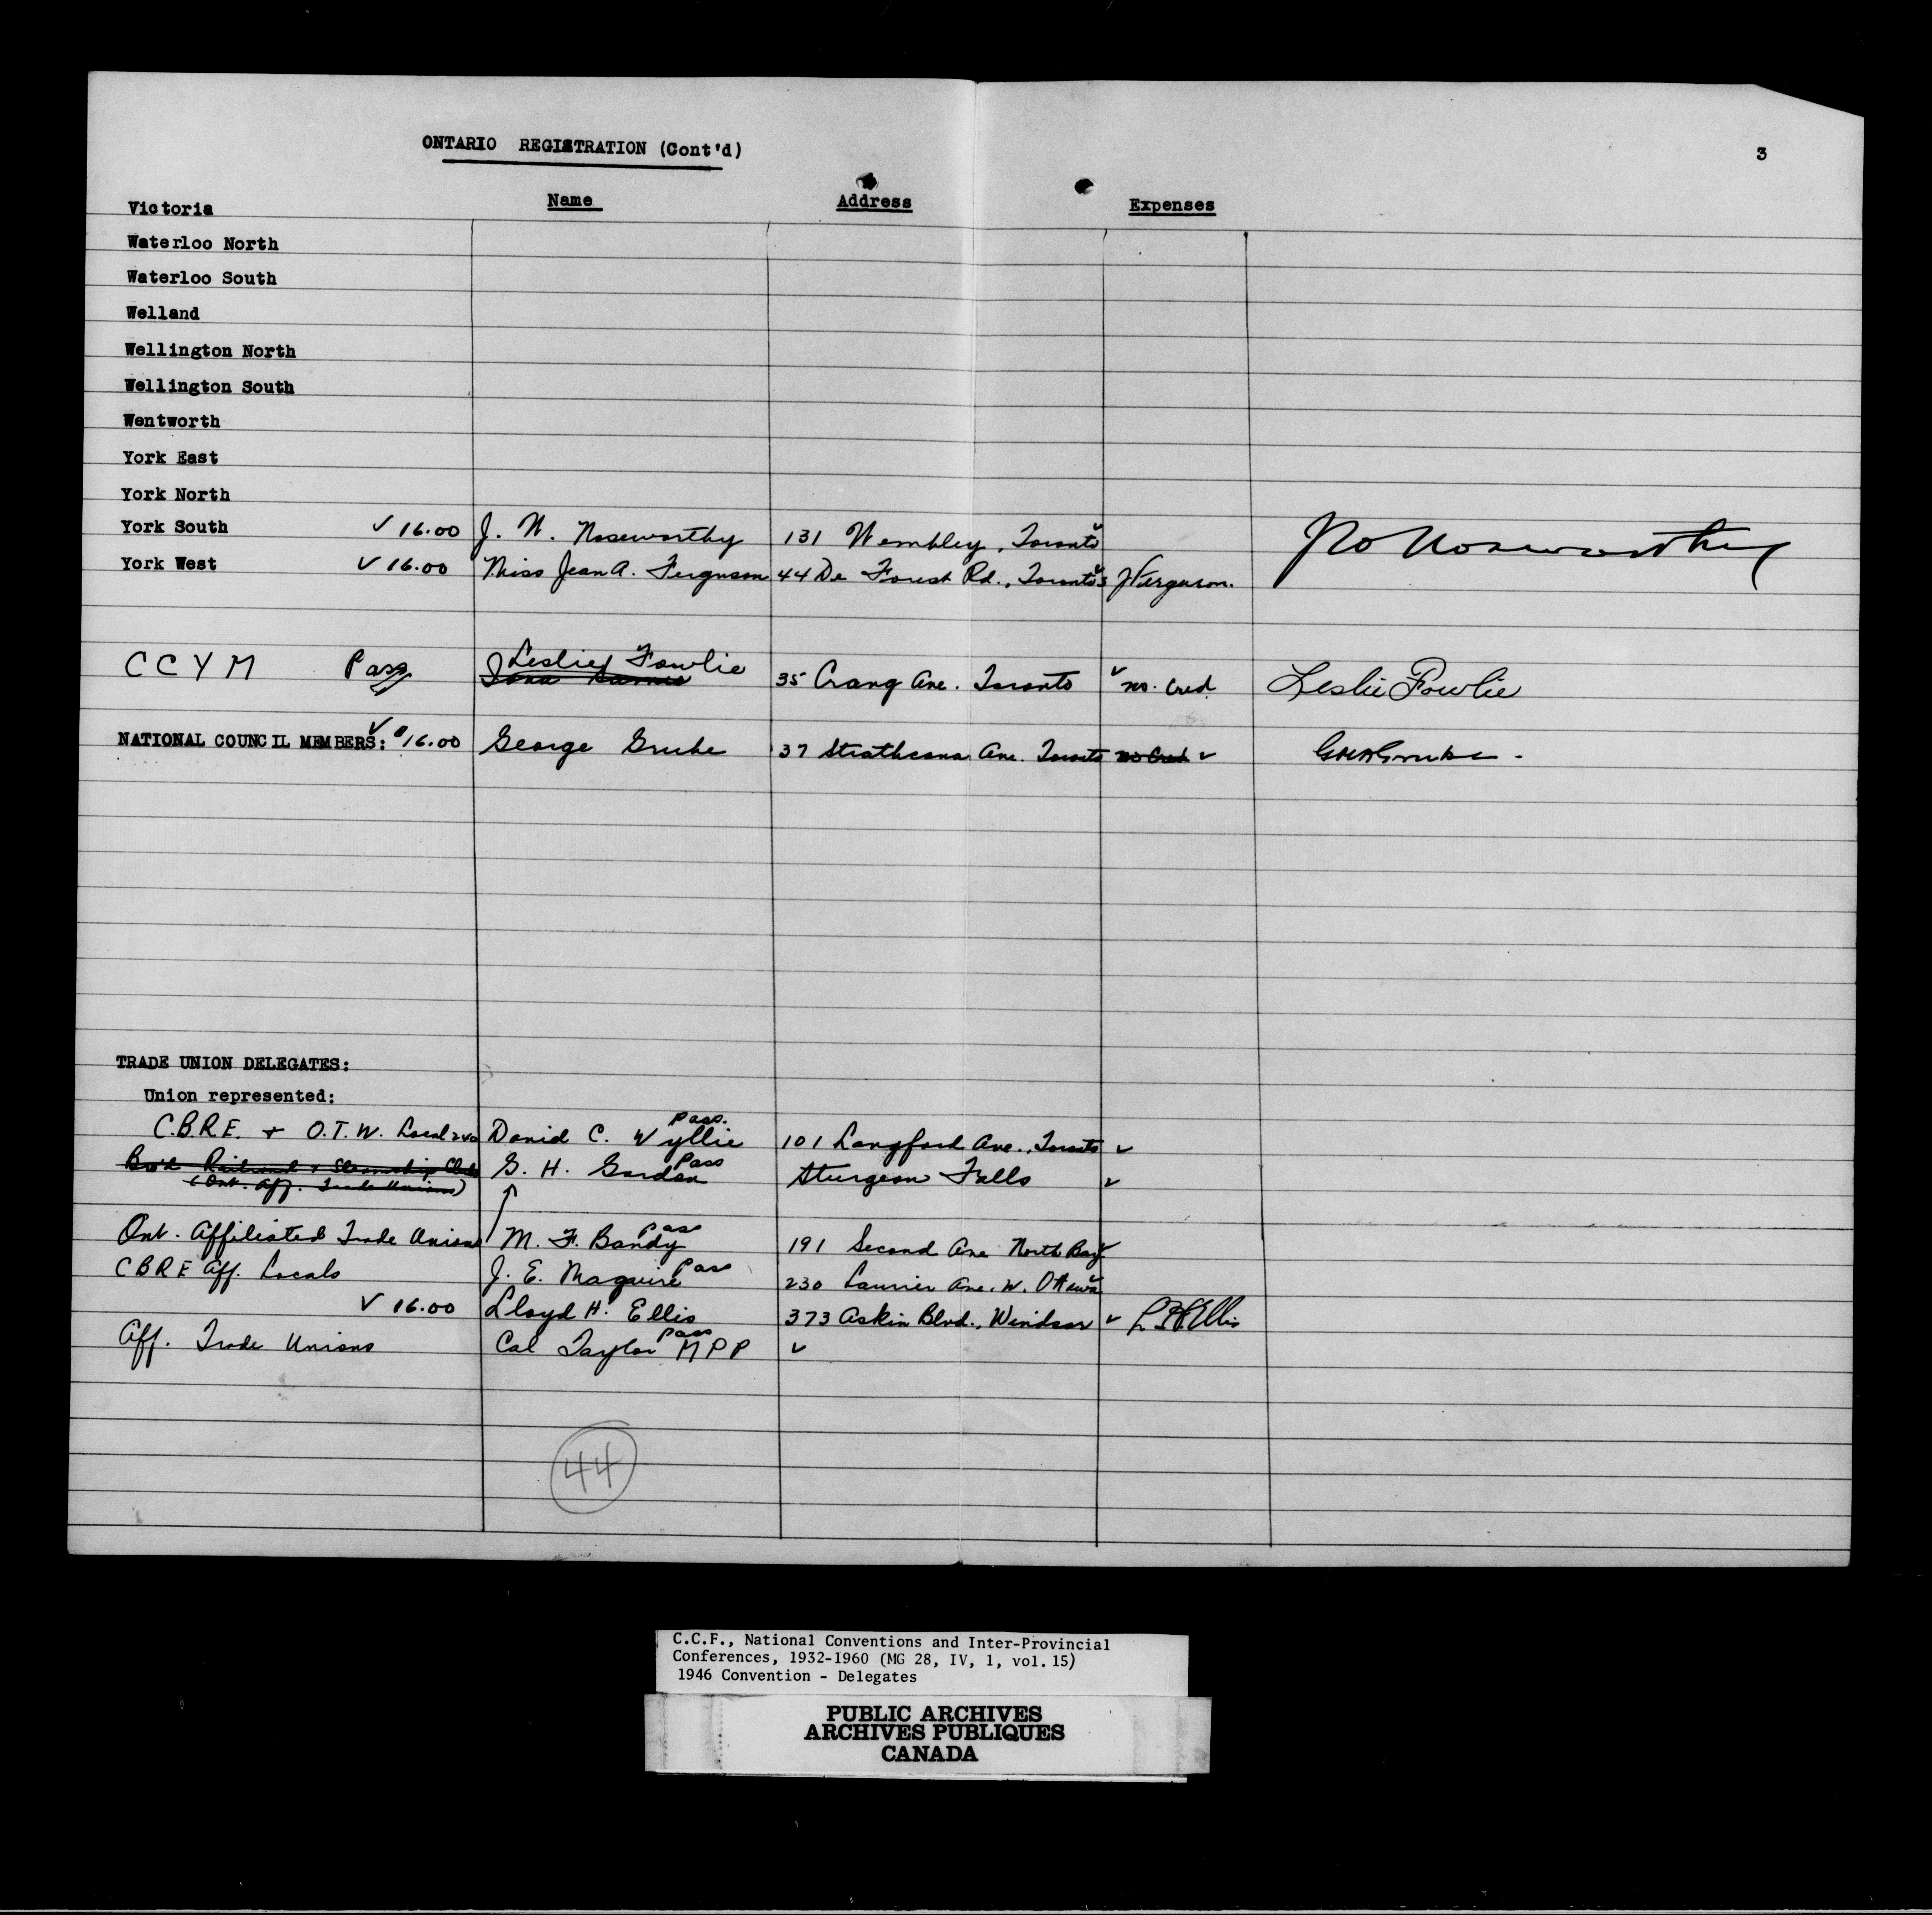 ONTARIO REGISTRATION (Cont'd)
3
Name Address Expenses
Victoria
Waterloo North
Waterloo South
Welland
Wellington North
Wellington South
Wentworth
York East
York North
York South ✓ 16.00 J. W. Noseworthy 131 Wembley, Toronto ✓ Jno Noseworthy
York West ✓ 16.00 Miss Jean A. Ferguson 44 De Forest Rd., Toronto ✓ J Ferguson.
Leslie Fowlie
C C Y M Pass 35 Crang Ave. Toronto ✓ no. Cred. Leslie Fowlie
NATIONAL COUNCIL MEMBERS: ✓ $16.00 George Grube 37 Strathcona Ave. Toronto no Cred ✓ GMA Grube.
TRADE UNION DELEGATES:
Union represented:
C.B.R.E. + O.T.W. Local David C. Wyllie Pass. 101 Langford Ave., Toronto ✓
Bro'd Railroad & Steamship Clerks G. H. Gordon Pass Sturgeon Falls ✓
(Ont. Aff. Trade Unions)
Ont. Affiliated Trade Unions M. F. Bandy Pass 191 Second Ave North Bay ✓
C B R E Aff. Locals J. E. Maguire Pass 230 Laurier Ave. W. Ottawa ✓
✓ 16.00 Lloyd H. Ellis 373 Askin Blvd., Windsor ✓ L H Ellis
Aff. Trade Unions Cal Taylor MPP Pass ✓
44
C.C.F., National Conventions and Inter-Provincial
Conferences, 1932-1960 (MG 28, IV, 1, vol. 15)
1946 Convention - Delegates
PUBLIC ARCHIVES
ARCHIVES PUBLIQUES
CANADA